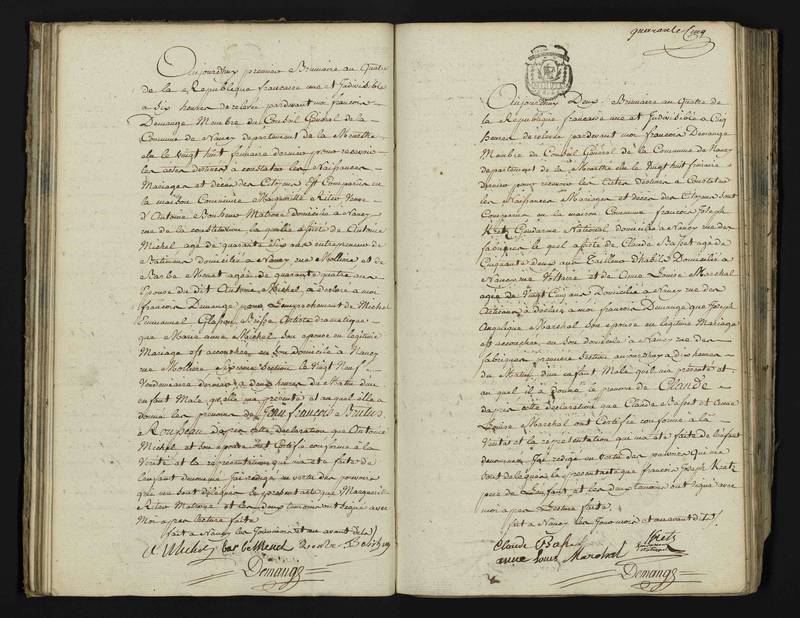 Aujourdhuy premier Brumaire an Quatre
de la République francaise une et Indivisible
a Six heures de relevée pardevant moi francois
Demange Membre du Conseil Général de la
Commune de Nancy departement de la Meurthe
elu le vingt huit frimaire dernier pour recevoir
les actes destinés a constater les Naissances
Mariages et décès des Citoyens Est Comparue en
la maison Commune Marguerite veuve
d'Antoine Bonheur Matrone domiciliée a Nancy
rue de la constitution, la quelle assisté de Antoine
Michel agé de quarante Six ans entrepreneur de
Batimens domicilié a Nancy rue Molliere et de
Barbe Menet agée de quarante quatre ans
Epouse du dit Antoine Michel, a déclaré a moi
francois Demange de Michel
Emmanuel Artiste dramatique
que Marie anne Michel Son epouse en légitime
Mariage est accouchée, en Son domicile a Nancy
rue Molliere Section le Vingt Neuf
Vendemiaire dernier a deux heures du Matin d'un
enfant Male qu'elle m'a présenté et au quel elle a
donné les prenoms de Jean francois Brutus
Rousseau d'apres cette déclaration que Antoine
Michel et Son épouse ont Certifié conforme à la
Verité et la représentation qui m'a été faite de
l'enfant denommé J'ai redigé en vertu des pouvoirs
qui me sont délégués le présent acte que Marguerite
Matrone et les deux temoins ont Signé avec
Moi apres lecture faite
fait a Nancy les Jour mois et an avant dits
A Michel barbe Menel
Demange
quarante Cinq
Aujourdhuy Deux Brumaire an Quatre de
la République francaise une et Indivisible a Cinq
heures de relevée pardevant moi francois Demange
Membre du Conseil Général de la Commune de Nancy
departement de la Meurthe élu le Vingt huit frimaire
dernier pour recevoir les Actes destinés a Constater
les Naissances Mariages et décès des Citoyens Est
Comparu en la maison Commune francois Joseph
Kretz Gendarme National domicilié a Nancy rue des
fabriques le quel assisté de Claude Bassot agé de
Cinquante deux ans Tailleur d'habits Domicilié a
Nancy rue et de Anne Louise Marechal
agée de Vingt Cinq ans Domiciliée a Nancy rue des
Artisans à déclaré a moi francois Demange que Joseph
Angelique Marechal Son epouse en légitime Mariage
est accouchée, en Son domicile a Nancy rue des
fabriques premiere Section aujourdhuy a dix heures
du Matin d'un enfant Male qu'il m'a présenté et
au quel il à donné le prenom de Claude
d'apres cette declaration que Claude Bassot et Anne
Louise Marechal ont Certifié conforme à la
Verité et la représentation qui m'a été faite de l'enfant
denommé J'ai redigé en vertu des pouvoirs qui me
sont délégués le présent acte que francois Joseph Kretz
pere de l'enfant et les deux temoins ont Signé avec
moi apres Lecture faite.
fait a Nancy les Jour mois et an avant dits
Claude Bassot Kretz
anne louis Marechal
Demange